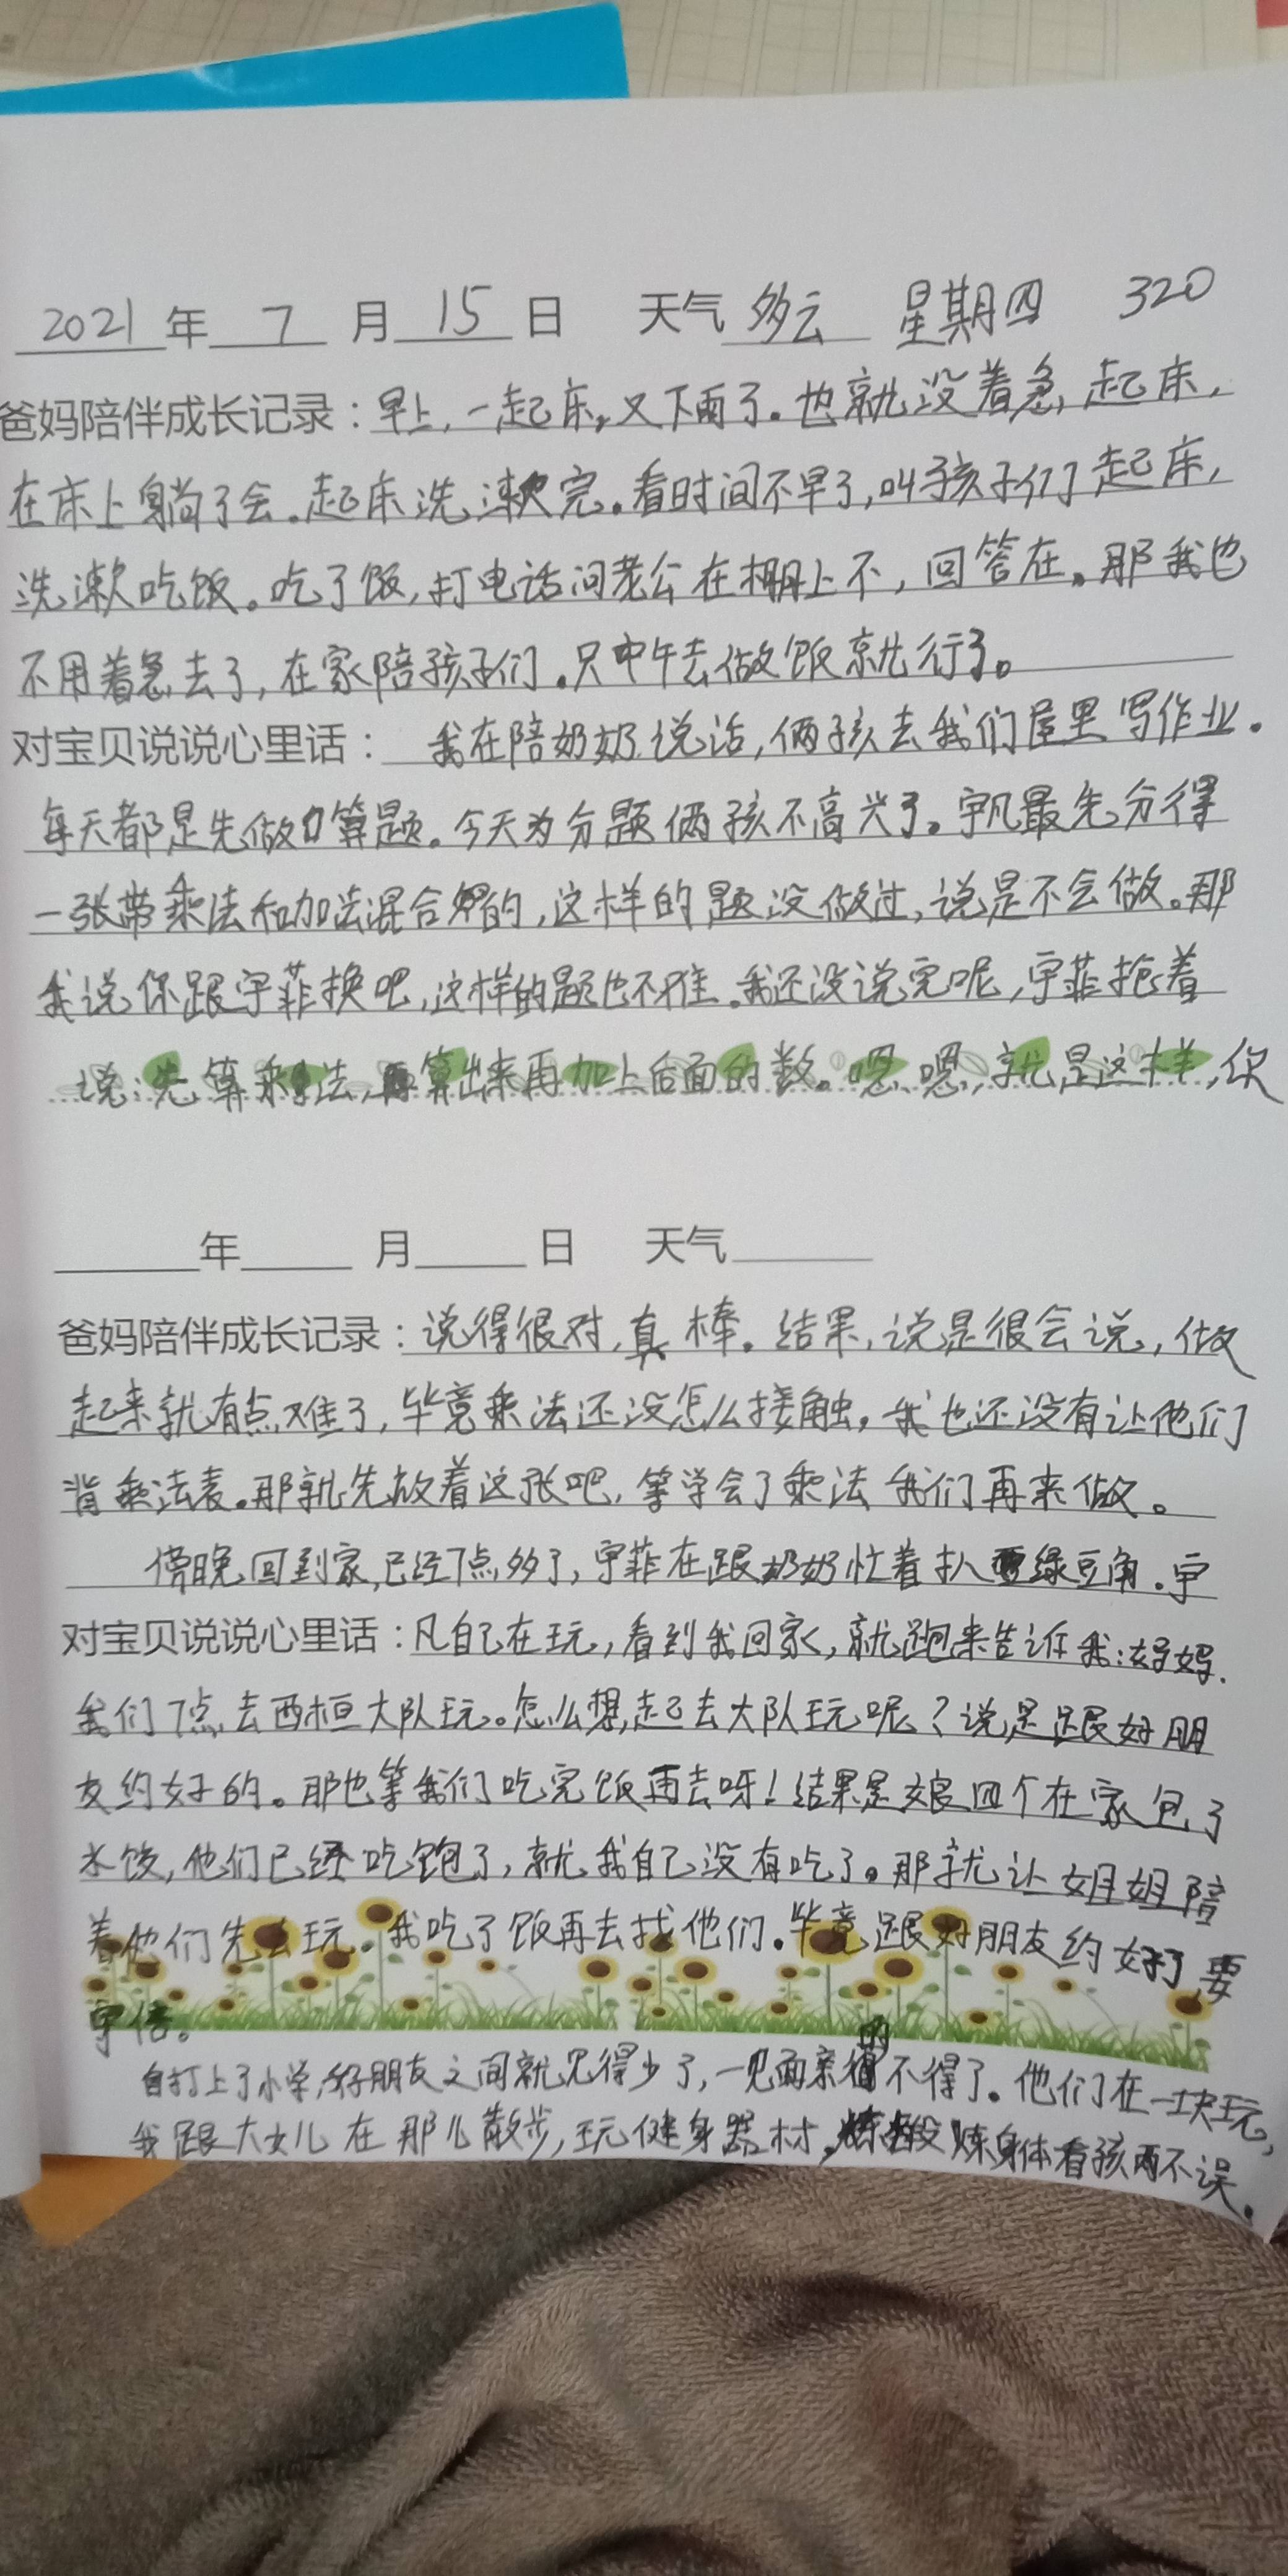 2021年 7 月 15 日 天气 多云 星期四 320
爸妈陪伴成长记录：早上，一起床，又下雨了。也就没着急起床，
在床上躺了会。起床洗漱完。看时间不早了，叫孩子们起床，
洗漱吃饭。吃了饭，打电话问老公在棚上不，回答在。那我也
不用着急去了，在家陪孩子们。只中午去做饭就行了。
对宝贝说说心里话：我在陪奶奶说话，俩孩去我们屋里写作业。
每天都是先做口算题。今天为分题俩孩不高兴了。宇凡最先分得
一张带乘法和加法混合的，这样的题没做过，说是不会做。那
我说你跟宇菲换吧，这样的题也不难。我还没说完呢，宇菲抢着
说：先算乘法，算出来再加上后面的数。嗯，嗯，就是这样，你
年 月 日 天气
爸妈陪伴成长记录：说得很对，真棒。结果，说是很会说，做
起来就有点难了，毕竟乘法还没怎么接触，我也还没有让他们
背乘法表。那就先放着这张吧，等学会了乘法我们再来做。
傍晚回到家，已经7点多了，宇菲在跟奶奶忙着扒绿豆角。宇
对宝贝说说心里话：凡自己在玩，看到我回家，就跑来告诉我：妈妈，
我们7点去西桓大队玩。怎么想起去大队玩呢？说是跟好朋
友约好的。那也等我们吃完饭再去呀！结果是娘四个在家包了
水饺，他们已经吃饱了，就我自己没有吃了。那就让姐姐陪
着他们先去玩。我吃了饭再去找他们。毕竟跟好朋友约好了，要
守信。
自打上了小学，好朋友之间就见得少了，一见面亲的不得了。他们在一块玩，
我跟大女儿在那儿散步，玩健身器材，锻炼身体看孩两不误。